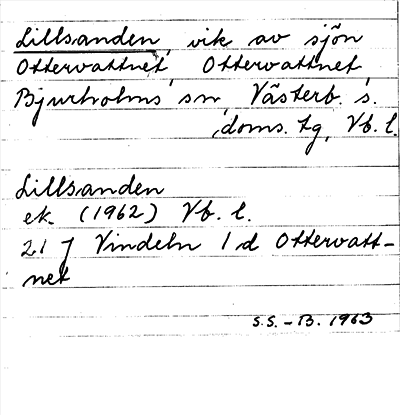 Lillsanden, vik av sjön
Ottervattnet, Ottervattnet,
Bjurholms sn, Västerb. s.
doms. tg, Vb. l.
Lillsanden
ek. (1962) Vb. l.
21 J Vindeln 1 d Ottervatt-
net
S.S. - B. 1963